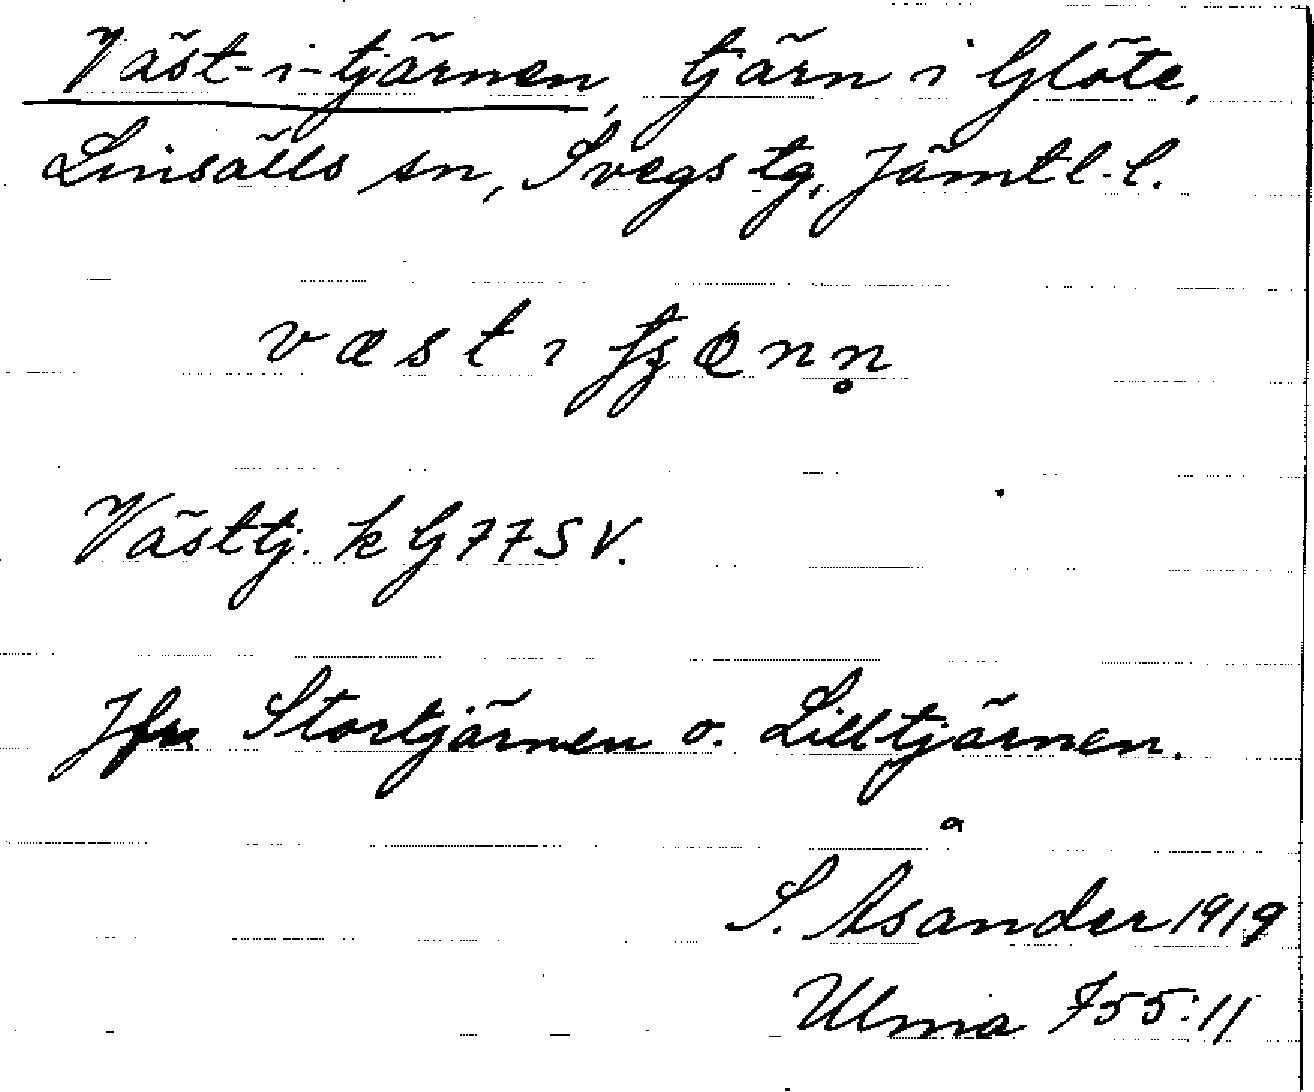 Väst-i-tjärnen, tjärn i Glöte,
Linsälls sn, Svegs tg, Jämtl. l.
væst ı
Västtj. k G77SV.
Jfr Stortjärnen o. Lilltjärnen.
S. Åsander 1919
Ulma 755:11